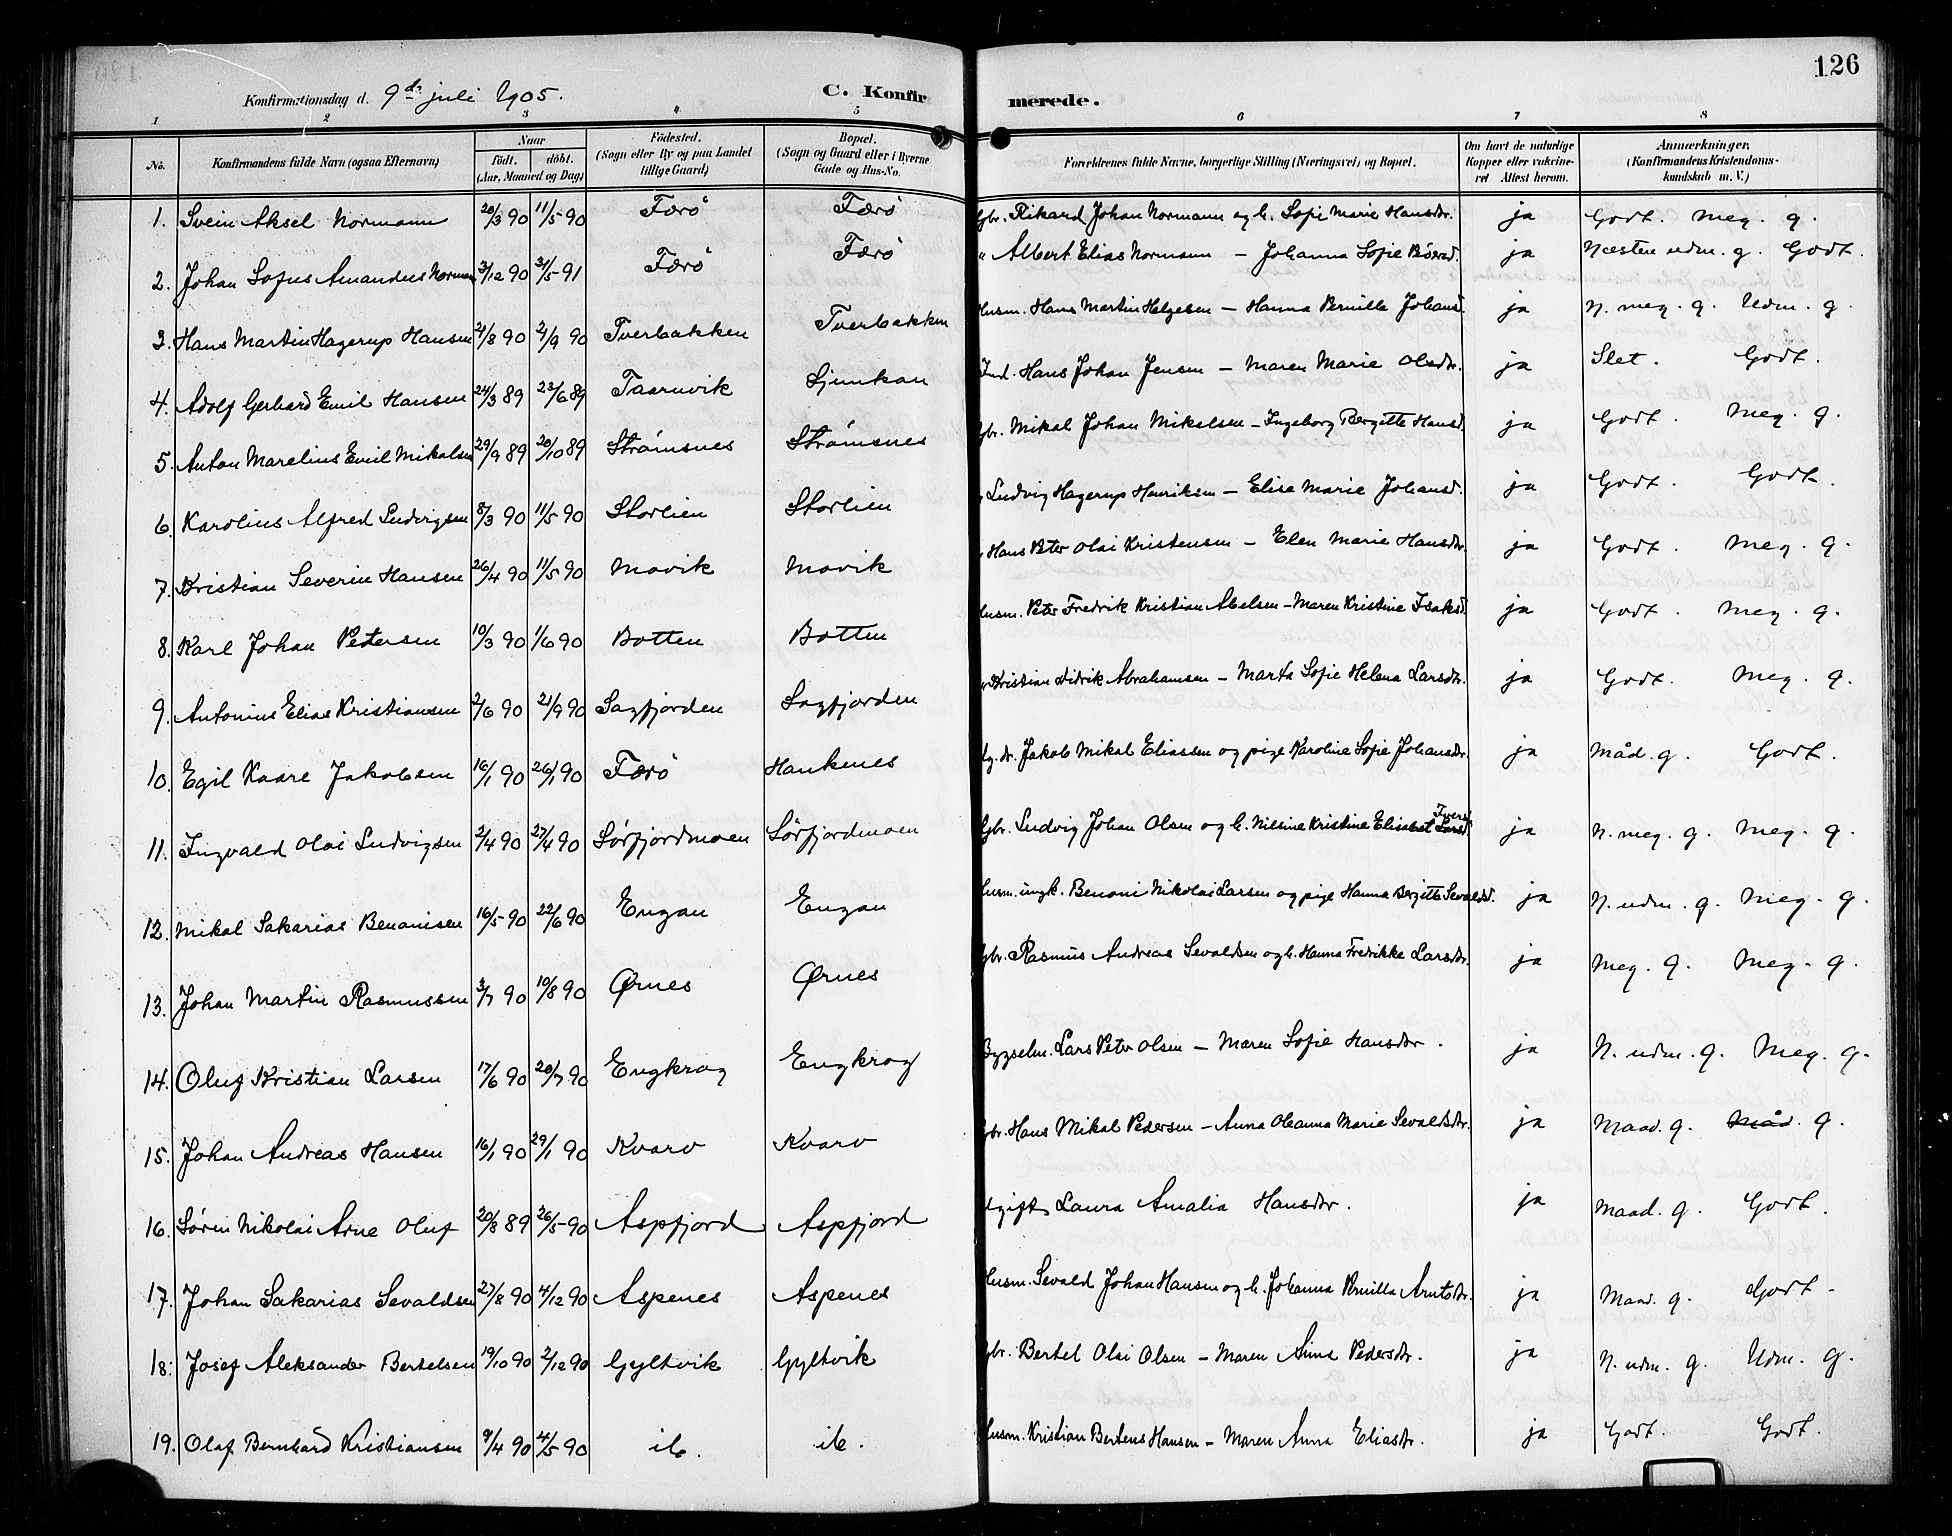 126
Konfirmationsdag d. 9de juli 1905. C. Konfirmerede.
1 2 3 4 5 6 7 8
No. Konfirmandens fulde Navn (ogsaa Efternavn) Naar födt. döbt. (Aar, Maaned og Dag) Födested. (Sogn eller By og paa Landet tillige Gaard) Bopæl. (Sogn og Gaard eller i Byerne Gade og Hus-No. Forældrenes fulde Navne, borgerlige Stilling (Næringsvei) og Bopæl. Om havt de naturlige Kopper eller vakcineret Attest herom. Anmærkninger, (Konfirmandens Kristendomskundskab m. V.)
1. Svein Aksel Normann 20/3 90 11/5 90 Færö Færö Gbr. Rikard Johan Normann og h. Sofie Marie Hansdr. ja Godt. Meg. g.
2. Johan Sofus Amandus Normann 3/12 90 31/5 91 Færö Færö " Albert Elias Normann – Johanna Sofie ja Næsten udm. g. Godt.
3. Hans Martin Hagerup Hansen 21/8 90 21/9 90 Tverbakken Tverbakken Husm. Hans Martin Helgesen – Hanna Pernille Johansd. ja N. meg. g. Udm. g.
4. Adolf Gerhard Emil Hansen 24/3 89 23/6 89 Taarnvik Sjunkan Ind. Hans Johan Jensen – Maren Marie Olsdr. ja Slet. Godt.
5. Anton Marelius Emil Mikalsen 29/9 89 20/10 89 Strömsnes Strömsnes Gbr. Mikal Johan Mikalsen – Ingeborg Bergitte Hansd. ja Godt. Meg. g.
6. Karolius Alfred Ludvigsen 8/3 90 11/5 90 Storlien Storlien " Ludvig Hagerup Henriksen – Elise Marie Johansd. ja Godt. Godt.
7. Kristian Severin Hansen 26/4 90 11/5 90 Movik Movik " Hans Peter Olai Kristensen – Elen Marie Hansdr. ja Godt. Meg. g.
8. Karl Johan Petersen 10/3 90 1/6 90 Botten Botten Husm. Peter Fredrik Kristian Abelsen – Maren Kristine Isaksd. ja Godt. Meg. g.
9. Antonius Elias Kristiansen 2/6 90 21/9 90 Sagfjorden Sagfjorden " Kristian Didrik Abrahamsen – Marta Sofie Helena Larsdr. ja Godt. Meg. g.
10. Egil Kaare Jakobsen 16/1 90 26/1 90 Færö Haukenes Ug. dr. Jakob Mikal Eliassen og pige Karoline Sofie Johansdr. ja Måd. g. Godt.
11. Ingvald Olai Ludvigsen 2/4 90 27/4 90 Sörfjordmoen Sörfjordmoen Gbr. Ludvig Johan Olsen og h. Nilsine Kristine Elisabet Iversd. ja N. meg. g. Meg. g.
12. Mikal Sakarias Benonisen 16/5 90 22/6 90 Engan Engan Husm. ungk. Benoni Nikolai Larsen og pige Hanna Bergitte Sevaldsd. ja N. udm. g. Meg. g.
13. Johan Martin Rasmussen 3/7 90 10/8 90 Ørnes Ørnes Gbr. Rasmus Andreas Sevaldsen og h. Hanna Fredrikke Larsdr. ja Meg. g. Meg. g.
14. Oluf Kristian Larsen 17/6 90 20/7 90 Engkrog Engkrog Bygselm. Lars Peter Olsen – Maren Sofie Hansdr. ja N. udm. g. Meg. g.
15. Johan Andreas Hansen 16/1 90 29/1 90 Kvarv Kvarv Gbr. Hans Mikal Pedersen – Anna Oleanna Marie Sevaldsdr. ja Maad. g. Måd. g.
16. Sören Nikolai Arne Oluf 20/8 89 26/5 90 Aspfjord Aspfjord Ugift Laura Amalia Hansdr. ja Maad. g. Godt.
17. Johan Sakarias Sevaldsen 27/8 90 4/12 90 Aspenes Aspenes Husm. Sevald Johan Hansen og h. Johanna Pernilla Arntsdr. ja Maad. g. Godt.
18. Josef Aleksander Bertelsen 19/10 90 2/12 90 Gyltvik Gyltvik Gbr. Bertel Olai Olsen – Maren Anna Pedersdr. ja N. udm. g. Udm. g.
19. Olaf Bernhard Kristiansen 9/4 90 4/5 90 ib. ib. Husm. Kristian Bertens Hansen – Maren Anna Eliasdr. ja Godt. Godt.